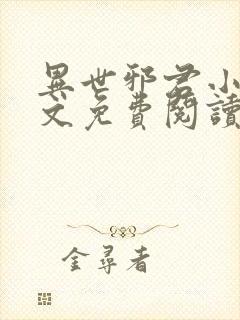 異世邪君小
文免費閱讀
金尋者